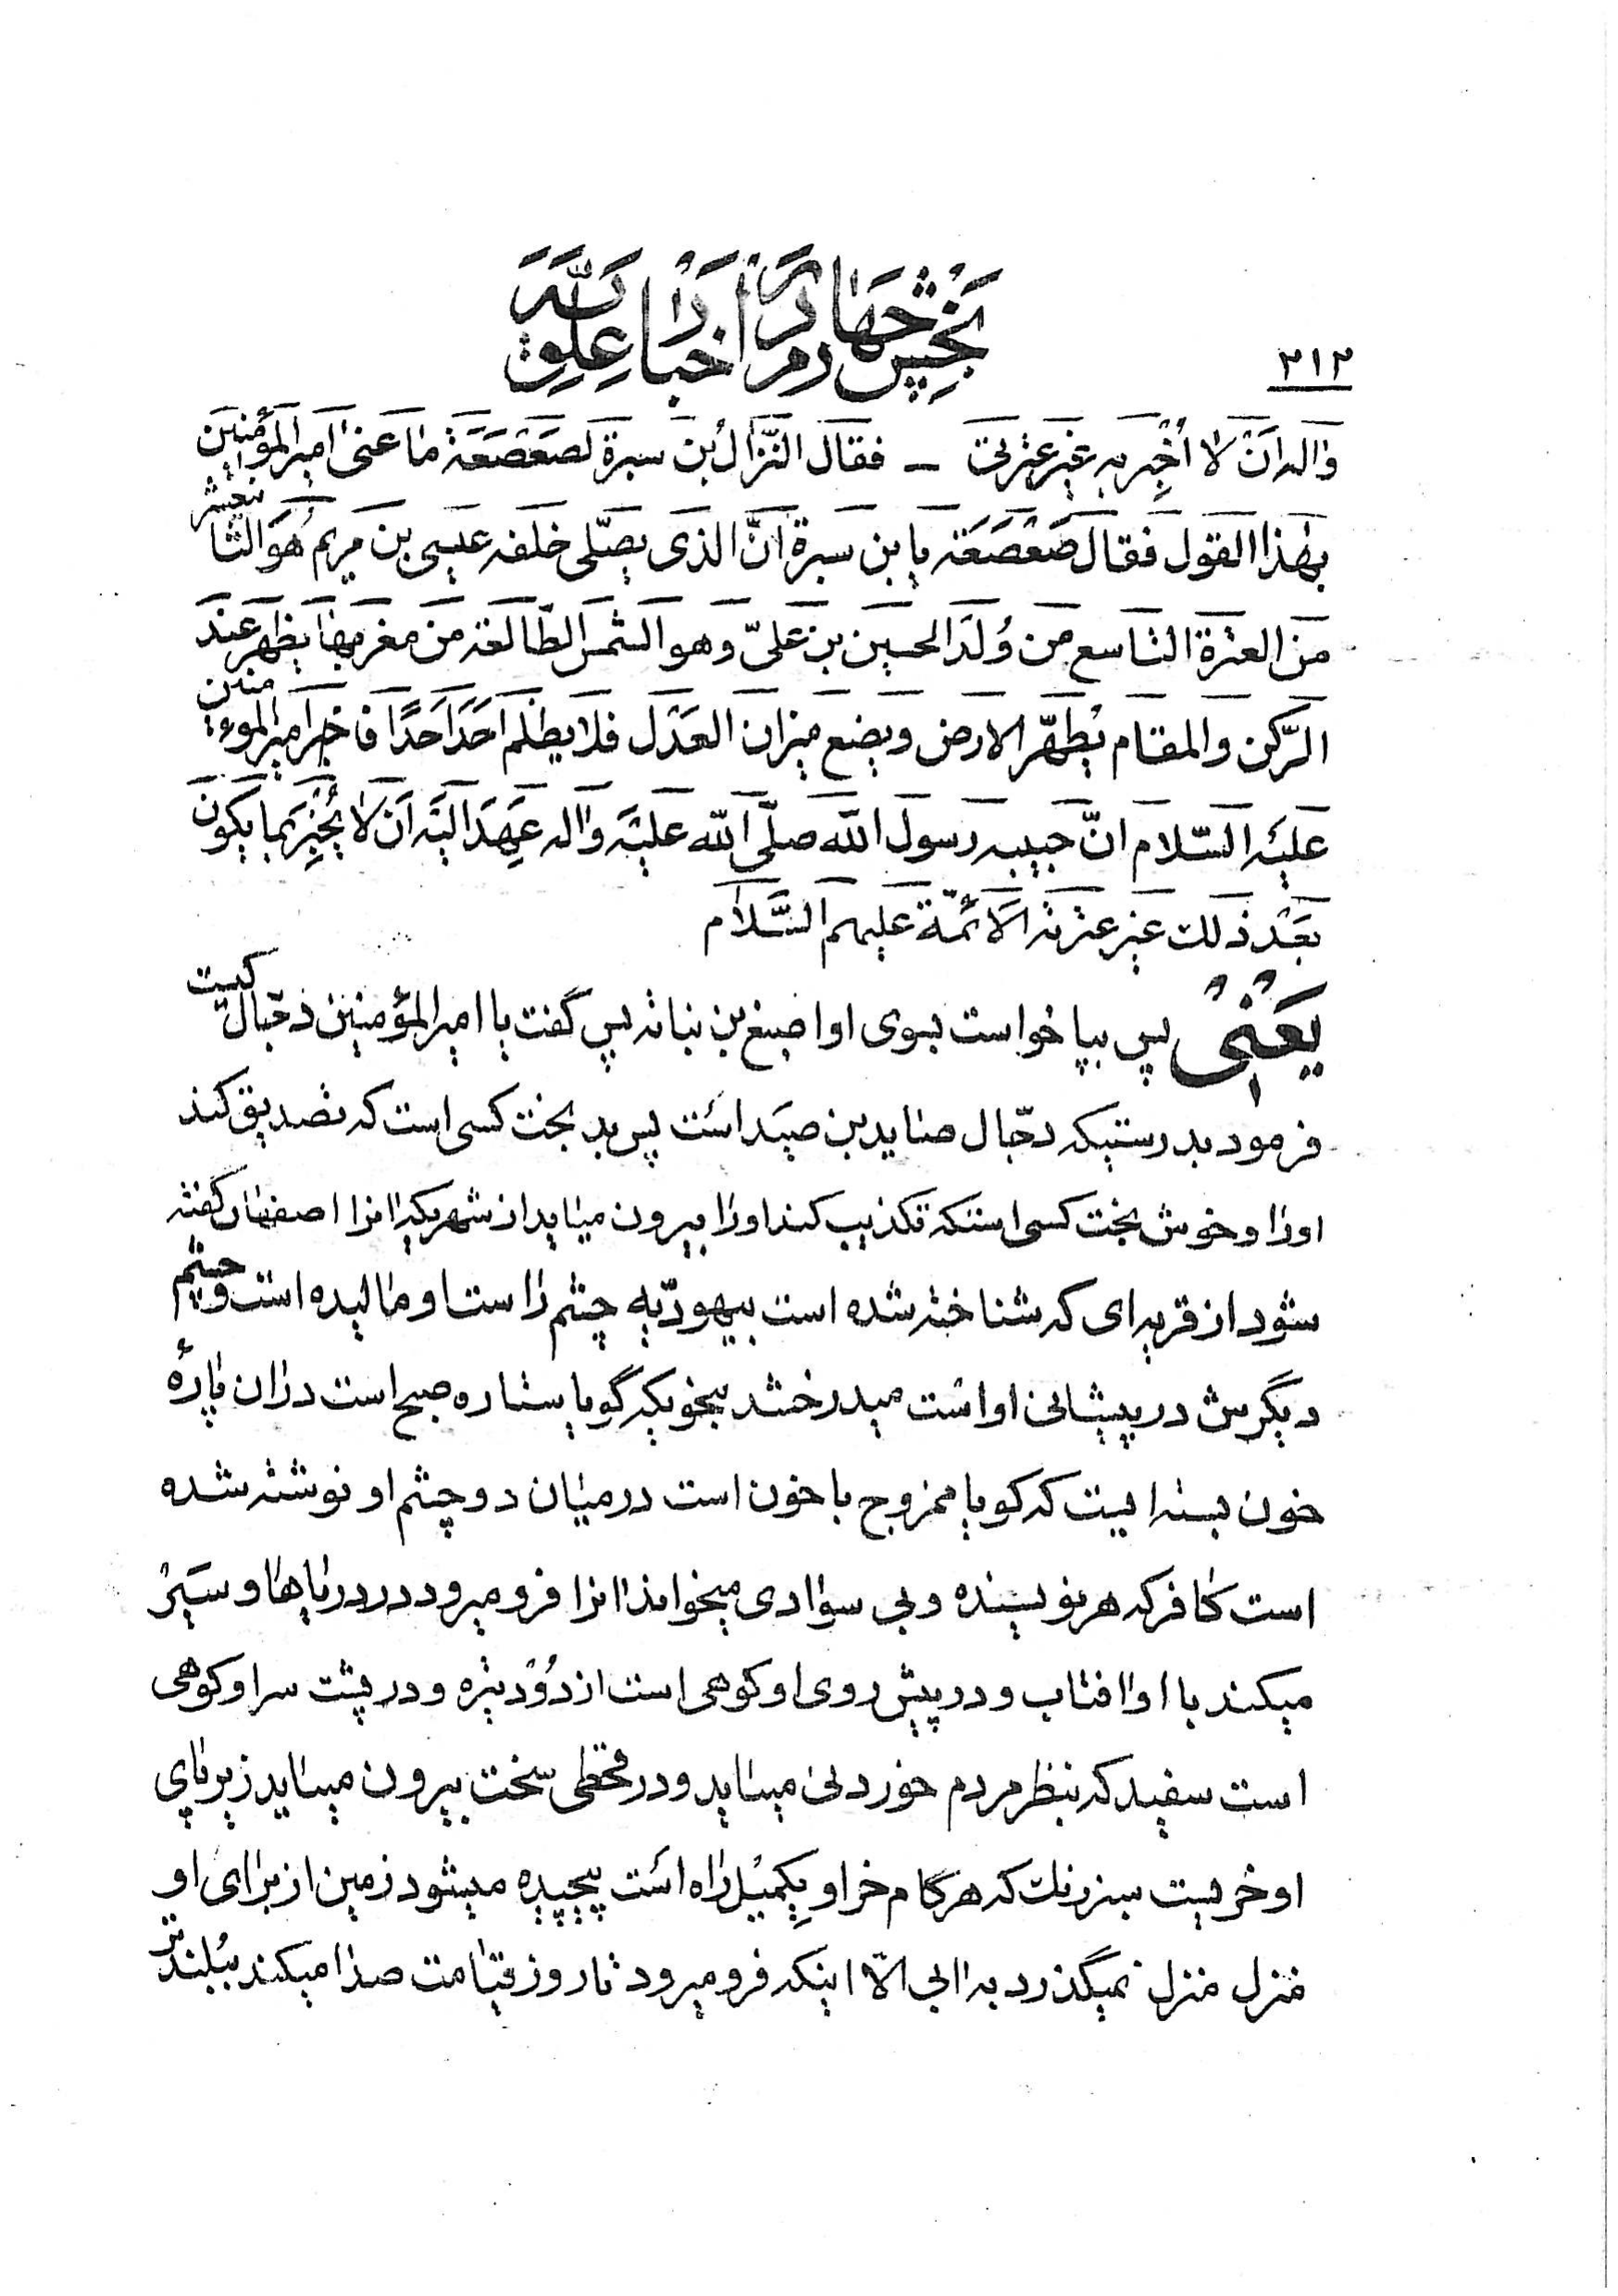 بخش چهارم در اخبار علویّه
۲۱۲
واله ان لا اُخبِر به غیر عترتی – فقال النّزال بن سبرة لصَعْصَعَة ما عنی امیرالمؤمنین
بهذا القول فقال صَعْصَعَة یا بن سبرة انّ الذی یصلّی خلفه عیسی بن مریم هُوَ الثانیعشر
من العترة التاسع من وُلدَ الحسین بن علیّ و هو الشمس الطّالعة من مغربها یظهر عند
الرّکن والمقام یُطهّر الارض و یضع میزان العَدْل فلا یظلم احَدٌ احَدًا فاخبر امیرالمؤمنین
علیه السّلام انّ حبیبه رسول الله صلّی الله علیه واله عَهِدَ الیه اَن لا یُخبِرَ بما یکون
بَعْد ذلک غیر عترته الائمّة علیهم السَّلام
یَعْنی پس بپا خواست بسوی او اصبغ بن نباته پس گفت یا امیرالمؤمنین دجّال کیست
فرمود بدرستیکه دجّال صاید بن صَید است پس بدبخت کسی است که تصدیق کند
اورا و خوش بخت کسی استکه تکذیب کند اورا بیرون میاید از شهریکه انرا اصفهان گفته
شود از قریه ای که شناخته شده است بیهودیّه چشم راست او مالیده است و چشم
دیگرش در پیشانی او است میدرخشد بنحویکه گویا ستاره صبح است در ان پارهٔ
خون بسته ایست که گویا ممزوج با خون است در میان دو چشم او نوشته شده
است کافر که هر نویسنده و بی سوادی میخواند انرا فرو میرود در دریاها و سَیر
میکند با او افتاب و در پیش روی او کوهی است از دُود تیره و در پشت سر او کوهی
است سفید که بنظر مردم خوردنی میاید و در قحطی سخت بیرون میاید زیر پای
او خریست سبز رنک که هر گام خر او یکمیل راه است پیچیده میشود زمین از برای او
منزل منزل نمیگذرد به ابی الّا اینکه فرو میرود تا روز قیامت صدا میکند ببُلندتر